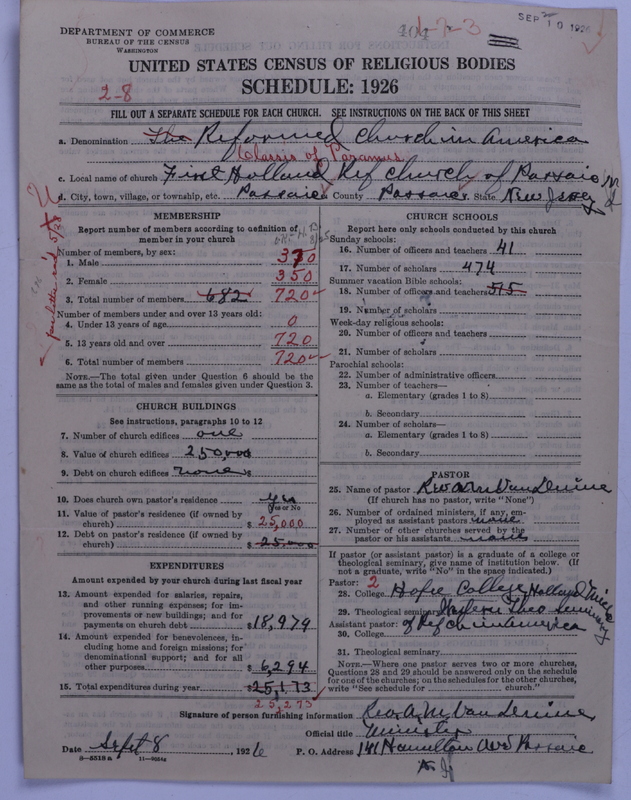 DEPARTMENT OF COMMERCE
BUREAU OF THE CENSUS
WASHINGTON
1-7-3
SEP 10 1926
UNITED STATES CENSUS OF RELIGIOUS BODIES
SCHEDULE: 1926
2-8
FILL OUT A SEPARATE SCHEDULE FOR EACH CHURCH. SEE INSTRUCTIONS ON THE BACK OF THIS SHEET
a. Denomination The Reformed Church in America
Classis of Paramus
c. Local name of church First Holland Ref Church of Passaic N J
d. City, town, village, or township, etc. Passaic County Passaic State New Jersey
MEMBERSHIP
Report number of members according to definition of member in your church
Number of members, by sex:
1. Male 370
2. Female 350
3. Total number of members 682 720
Number of members under and over 13 years old:
4. Under 13 years of age 0
5. 13 years old and over 720
6. Total number of members 720
NOTE.—The total given under Question 6 should be the
same as the total of males and females given under Question 3.
CHURCH BUILDINGS
See instructions, paragraphs 10 to 12
7. Number of church edifices one
8. Value of church edifices $ 250,000
9. Debt on church edifices $ none
10. Does church own pastor's residence yes
Yes or No
11. Value of pastor's residence (if owned by
church) $ 25,000
12. Debt on pastor's residence (if owned by
church) $ 25000
EXPENDITURES
Amount expended by church during last fiscal year
13. Amount expended for salaries, repairs,
and other running expenses; for im-
provements or new buildings; and for
payments on church debt $18,979
14. Amount expended for benevolences, in-
cluding home and foreign missions; for
denominational support; and for all
other purposes $6,294
15. Total expenditures during year $25,173
25,273
CHURCH SCHOOLS
Report here only schools conducted by this church
Sunday schools:
16. Number of officers and teachers 41
17. Number of scholars 474
Summer vacation Bible schools:
18. Number of officers and teachers 515
19. Number of scholars
Week-day religious schools:
20. Number of officers and teachers
21. Number of scholars
Parochial schools:
22. Number of administrative officers
23. Number of teachers—
a. Elementary (grades 1 to 8)
b. Secondary
24. Number of scholars—
a. Elementary (grades 1 to 8)
b. Secondary
PASTOR
25. Name of pastor
(If church has no pastor, write "None")
26. Number of ordained ministers, if any, em-
ployed as assistant pastors none
27. Number of other churches served by the
pastor or his assistants none
If pastor (or assistant pastor) is a graduate of a college or
theological seminary, give name of institution below. (If
not a graduate, write "No" in the space indicated.)
Pastor: 2
28. College Hope College Holland Mich
29. Theological seminary Western Theo Seminary
Assistant pastor: of Ref ch in America
30. College
31. Theological seminary
NOTE.—Where one pastor serves two or more churches,
Questions 28 and 29 should be answered only on the schedule
for one of the churches; on the schedules for the other churches,
write "See schedule for church."
Signature of person furnishing information
Official title Minister
Date Sept 8, 1926 P. O. Address 141 Hamilton Ave Passaic
N J
8-5518a 11-9554a